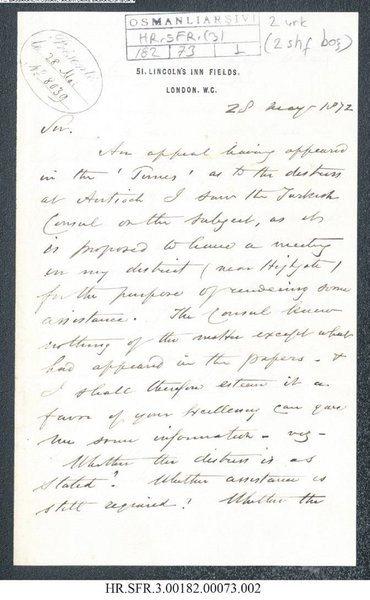 OSMANLI ARŞİVİ
HR.SFR.(3)
182 73 1
2 vrk
(2 shf boş)
le 28 Mai
No 8039
51. LINCOLN'S INN FIELDS.
LONDON. W.C.
28 May 1872
Sir.
An appeal having appeared
in the 'Times' as to the distress
at Antioch I saw the Turkish
Consul on the subject, as it
is proposed to have a meeting
in my district (near Highgate)
for the purpose of rendering some
assistance. The Consul knew
nothing of the matter except what
had appeared in the papers - &
I shall therefore esteem it a
favor if your Excellency can give
me some information - viz -
Whether the distress is as
stated? Whether assistance is
still required? Whether the
HR.SFR.3.00182.00073.002